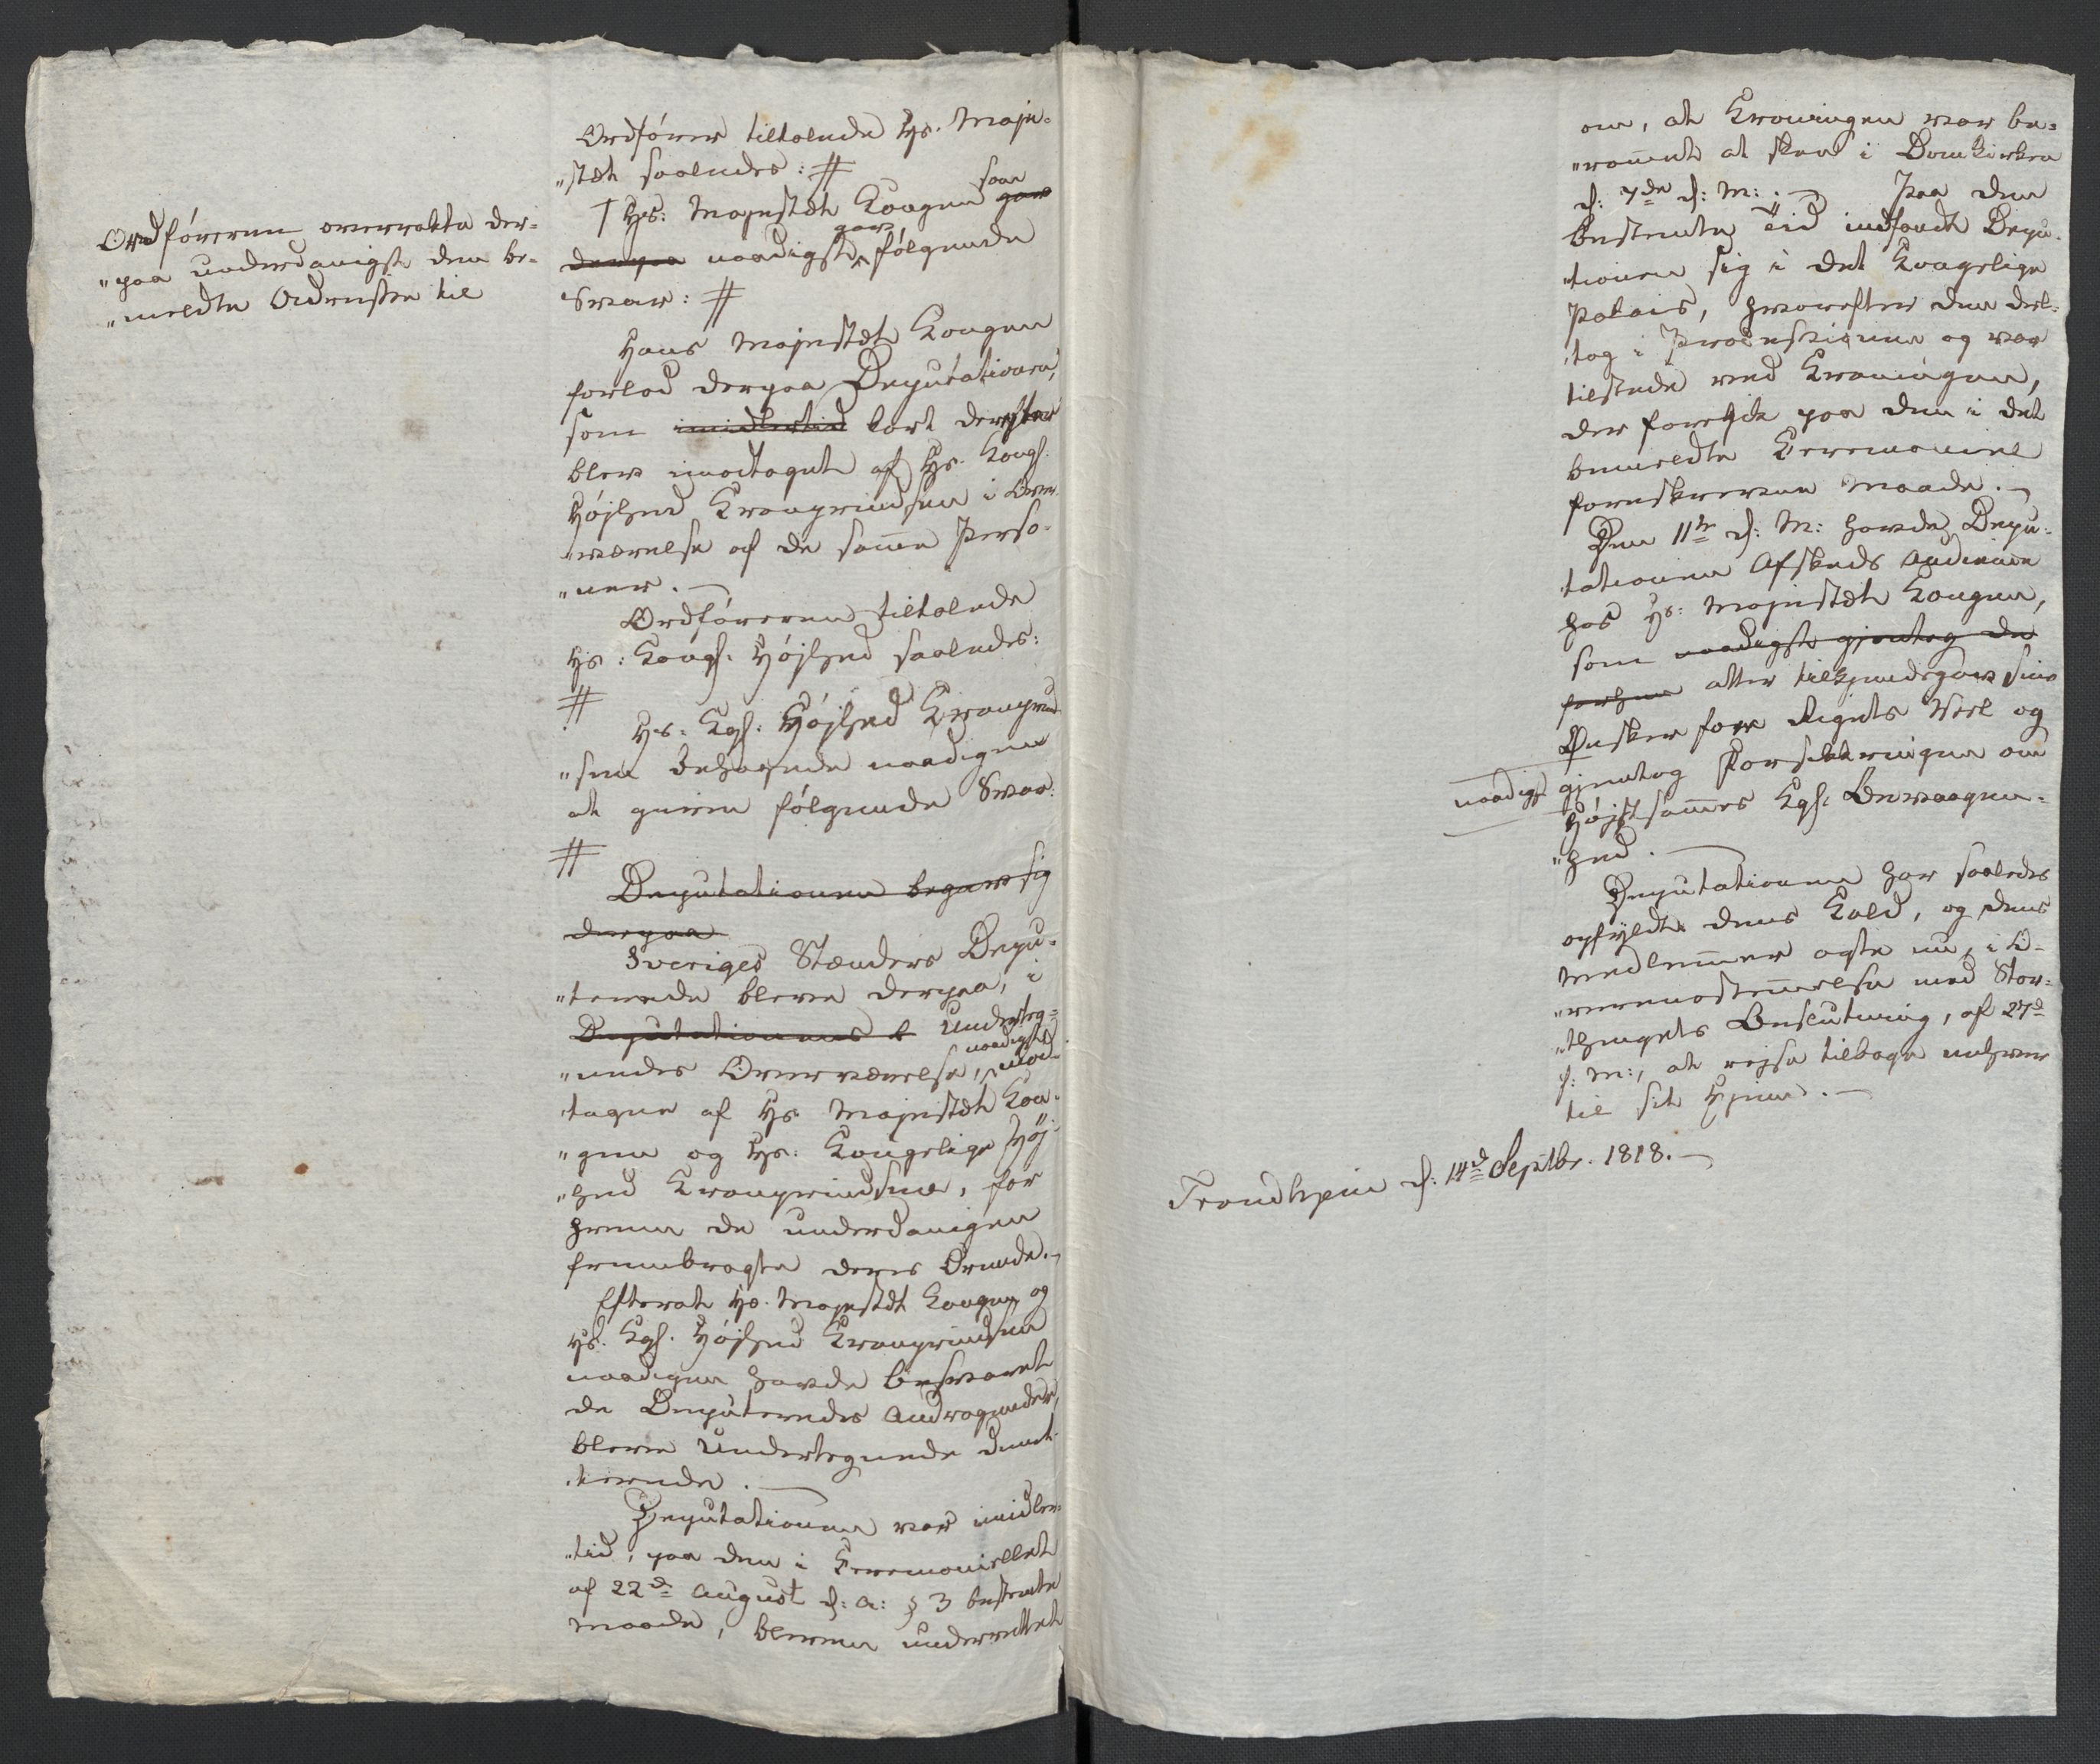 Ordföreren overrakte der-
"paa underdanigst den be-
"meldte Adresse til
Ordfører tiltalede Hs. Maje-
"stæt saaledes: #
† Hs: Majestæt Kongen saa gav
derpaa naadigst gav følgende
Svar: #
Hans Majestæt Kongen
forlod derpaa Deputationen,
som imidlertid kort derefter
blev imodtaget af Hs. Kongl.
Højhed Kronprindsen i Over-
"værelse af de samme Perso-
"ner.
Ordføreren tiltalede
Hs: Kongl. Højhed saaledes:
#
Hs. Kgl: Højhed Kronprind-
"sen behagede naadigen
at give følgende Svar:
#
Deputationen begav sig
derpaa
Sveriges Stænders Depu-
"terede bleve derpaa, i
Deputationens b Underteg-
"nedes Overværelse, naadigst mod-
"tagne af Hs Majestæt Kon-
"gen og Hs: Kongelige Høj-
"hed Kronprindsen, for
hvem de underdanigen
frembragte deres Ærende.
Efterat Hs. Majestæt Kongen og
Hs. Kgl. Højhed Kronprindsen
naadigen havde besvaret
de Deputeredes Andragender,
bleve Undertegnede dimit-
"terede.
Deputationen var imidler-
"tid, paa den i Ceremoniellet
af 22de August d: A: § 3 bestemte
Maade, bleven underrettet
om, at Kroningen var be-
"ramt at skee i Domkirken
d: 7de d: M:. Paa den
bestemte Tid indfandt Depu-
"tionen sig i det Kongelige
Palais, hvorefter den del-
"tog i Processionen og var
tilstede ved Kroningen,
der foregik paa den i det
bemeldte Ceremoniel
foreskrevne Maade.
Den 11te d: M: havde Depu-
tationen Afskeds Audience
hos Hs: Majestæt Kongen,
som naadigst gjentog de
forhen atter tilkjendegav sine
Ønsker for Rigets Vel og
naadigst gjentog Forsikringen om
Højstsammes Kgl: Bevaagen-
"hed.
Deputationen har saaledes
opfyldt dens Kald, og dens
Medlemmer agte nu, i O-
"vereenstemmelse med Stor-
"thingets Beslutning, af 27de
f: M:, at rejse tilbage enhver
til sit Hjem.
Trondhjem d: 14de Septbr. 1818.